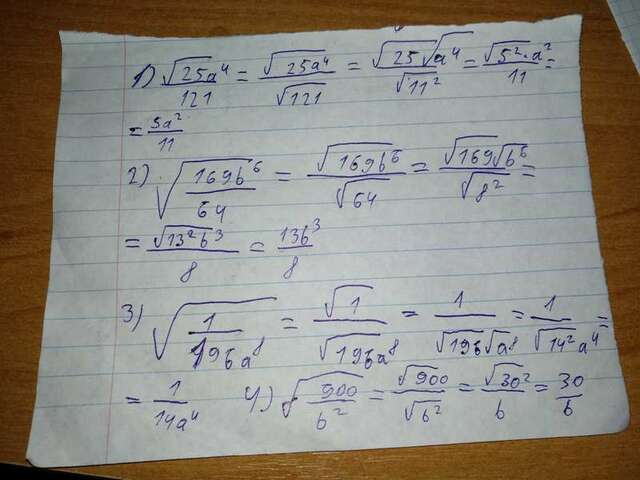 1) √25a⁴/121 = √25a⁴/√121 = √25√a⁴/√11² = √5²·a²/11 =
= 5a²/11
2) √(169b⁶/64) = √169b⁶/√64 = √169√b⁶/√8² =
= √13²b³/8 = 13b³/8
3) √(1/196a⁸) = √1/√196a⁸ = 1/√196√a⁸ = 1/√14²a⁴ =
= 1/14a⁴ 4) √(900/b²) = √900/√b² = √30²/b = 30/b